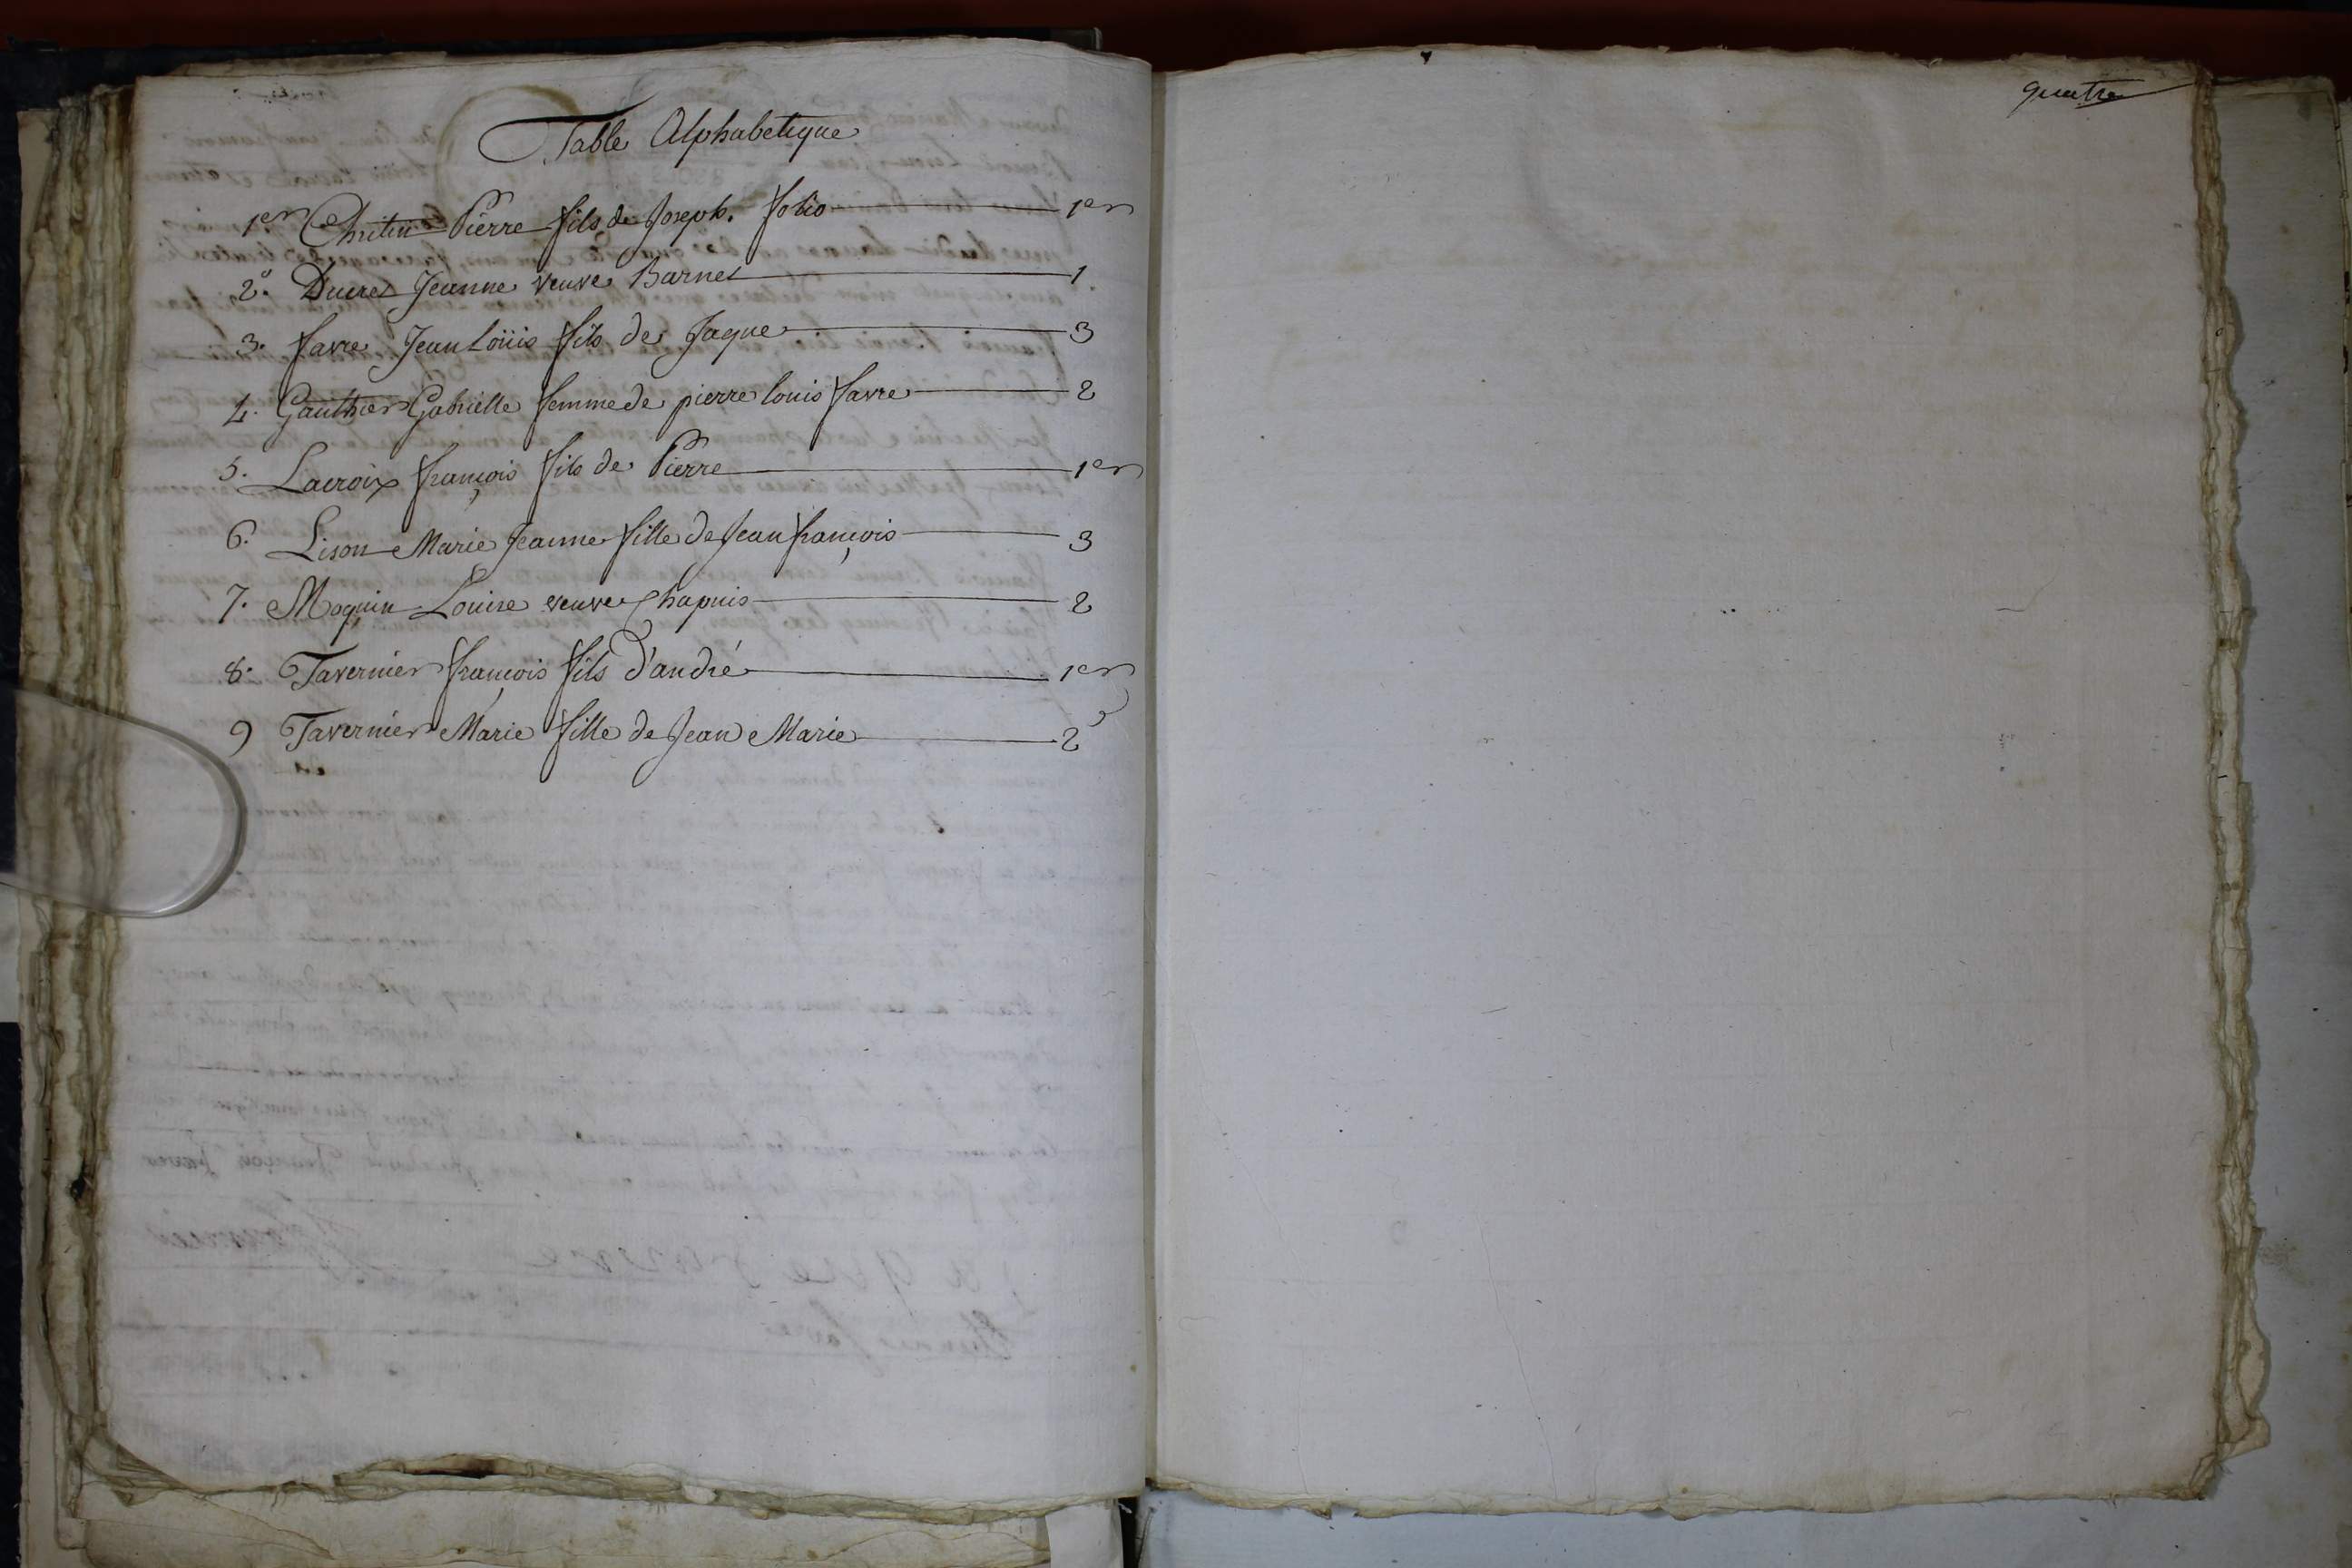 Table Alphabetique
1er Chritin Pierre fils de Joseph. folio 1er
2º. Ducret Jeanne veuve Barnet 1
3. favre Jean Loüis fils de Jaque 3
4. Gauthier Gabrielle femme de pierre louis favre 2
5. Lacroix françois fils de Pierre 1er
6. Lison Marie Jeanne fille de Jean françois 3
7. Moquin Louise veuve Chapuis 2
8. Tavernier françois fils d'andré 1er
9 Tavernier Marie fille de Jean Marie 2
quatre